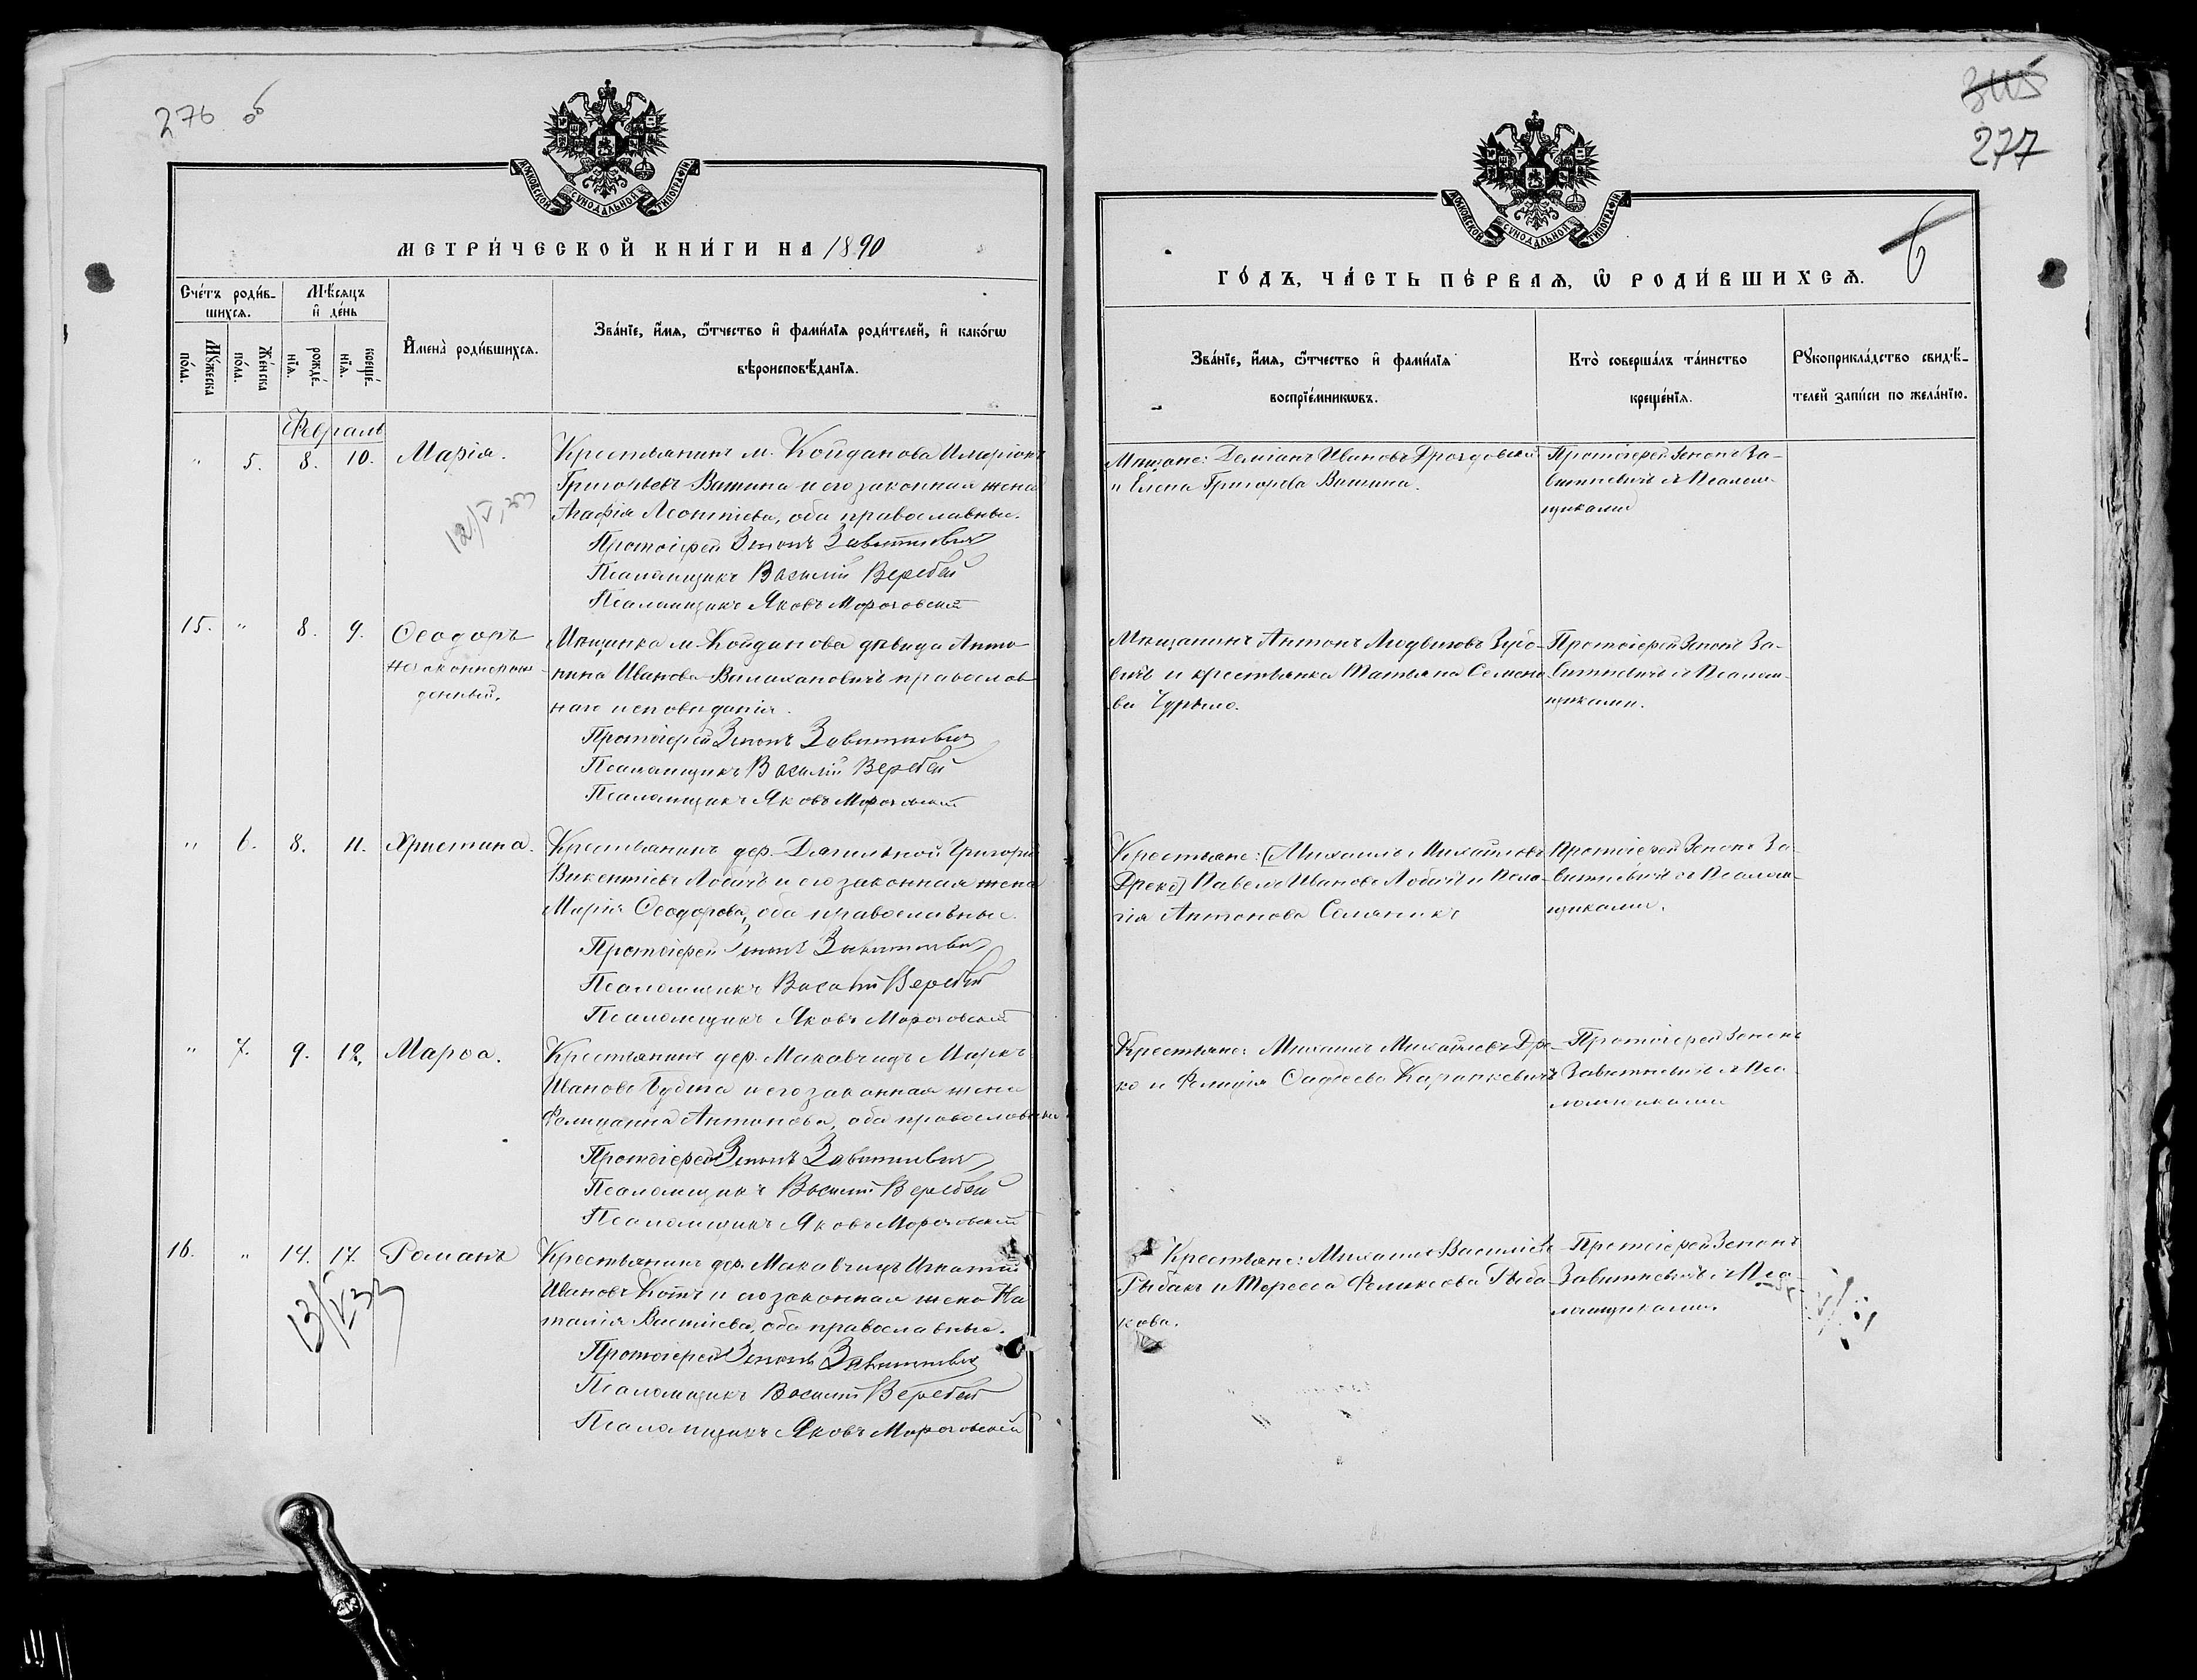 276 об
МОСКОВСКОЙ СѴНОДАЛЬНОЙ ТИПОГРАФІИ
МЕТРИ́ЧЕСКОЙ КНИ́ГИ НА 1890
Сче́тъ роди́в-
шихся.
Мѣ́сяцъ
и҆ де́нь
Му́жеска
по́ла.
Же́нска
по́ла.
рожде́-
нїя.
креще́-
нїя.
И҆мена̀ роди́вшихся.
Зва́нїе, и҆́мя, ѻ҆́тчество и҆ фами́лїя роди́телей, и҆ како́гѡ
вѣроисповѣ́данїя.
Февраль
" 5. 8. 10. Марія.
Крестьянинъ м. Койданова Иларіонъ
Григорьевъ Вашина и его законная жена
Агафія Леонтіева, оба православные.
Протоіерей Зенонъ Завитневичъ
Псаломщикъ Василій Веребей
Псаломщикъ Яковъ Мороговскій
12/V, 33
15. " 8. 9. Ѳеодоръ
незаконнорож-
денный.
Мѣщанка м. Койданова дѣвица Анто-
нина Иванова Вилахановичъ православ
наго исповѣданія.
Протоіерей Зенонъ Завитневичъ
Псаломщикъ Василій Веребей
Псаломщикъ Яковъ Мороговскій
" 6. 8. 11. Христина.
Крестьянинъ дер. Дягильной Григорій
Викентіевъ Лобачъ и его законная жена
Марія Ѳеодорова, оба православные.
Протоіерей Зенонъ Завитневичъ
Псаломщикъ Василій Веребей
Псаломщикъ Яковъ Мороговскій
" 7. 9. 12. Марѳа.
Крестьянинъ дер. Макавчицъ Маркъ
Ивановъ Губина и его законная жена
Фелиціанна Антонова, оба православные
Протоіерей Зенонъ Завитневичъ
Псаломщикъ Василій Веребей
Псаломщикъ Яковъ Мороговскій
16. " 14. 17. Романъ
13/V 33
Крестьянинъ дер. Макавчицъ Игнатій
Ивановъ Котъ и его законная жена На
талія Васильева, оба православные.
Протоіерей Зенонъ Завитневичъ
Псаломщикъ Василій Веребей
Псаломщикъ Яковъ Мороговскій
277
6
МОСКОВСКОЙ СѴНОДАЛЬНОЙ ТИПОГРАФІИ
ГО́ДЪ, ЧА́СТЬ ПЕ́РВАЯ, Ѽ РОДИ́ВШИХСЯ.
Зва́нїе, и҆́мя, ѻ҆́тчество и҆ фами́лїя
воспрїе́мникѡвъ.
Кто̀ соверша́лъ та́инство
креще́нїя.
Рꙋкоприкла́дство свидѣ́-
телей за́писи по жела́нїю.
Мѣщане: Демїанъ Ивановъ Дроздовскій
и Елена Григорьева Вашина.
Протоіерей Зенонъ За-
витневичъ съ Псалом-
щиками
Мѣщанинъ Антонъ Людвиковъ Зубо-
вичъ и крестьянка Татьяна Семено-
ва Чурыло.
Протоіерей Зенонъ За-
витневичъ съ Псалом-
щиками.
Крестьяне: (Михаилъ Михайловъ
Дреко) Павелъ Ивановъ Лобачъ и Пела-
гія Антонова Семяникъ
Протоіерей Зенонъ За-
витневичъ съ Псалом-
щиками.
Крестьяне: Михаилъ Михайловъ Дре-
ко и Фелиція Ѳадеева Карпкевичъ
Протоіерей Зенонъ
Завитневичъ съ Пса-
ломщиками
Крестьяне: Михаилъ Васильевъ
Рыбакъ и Тересса Феликсова Рыба-
кова.
Протоіерей Зенонъ
Завитневичъ съ Пса-
ломщиками.